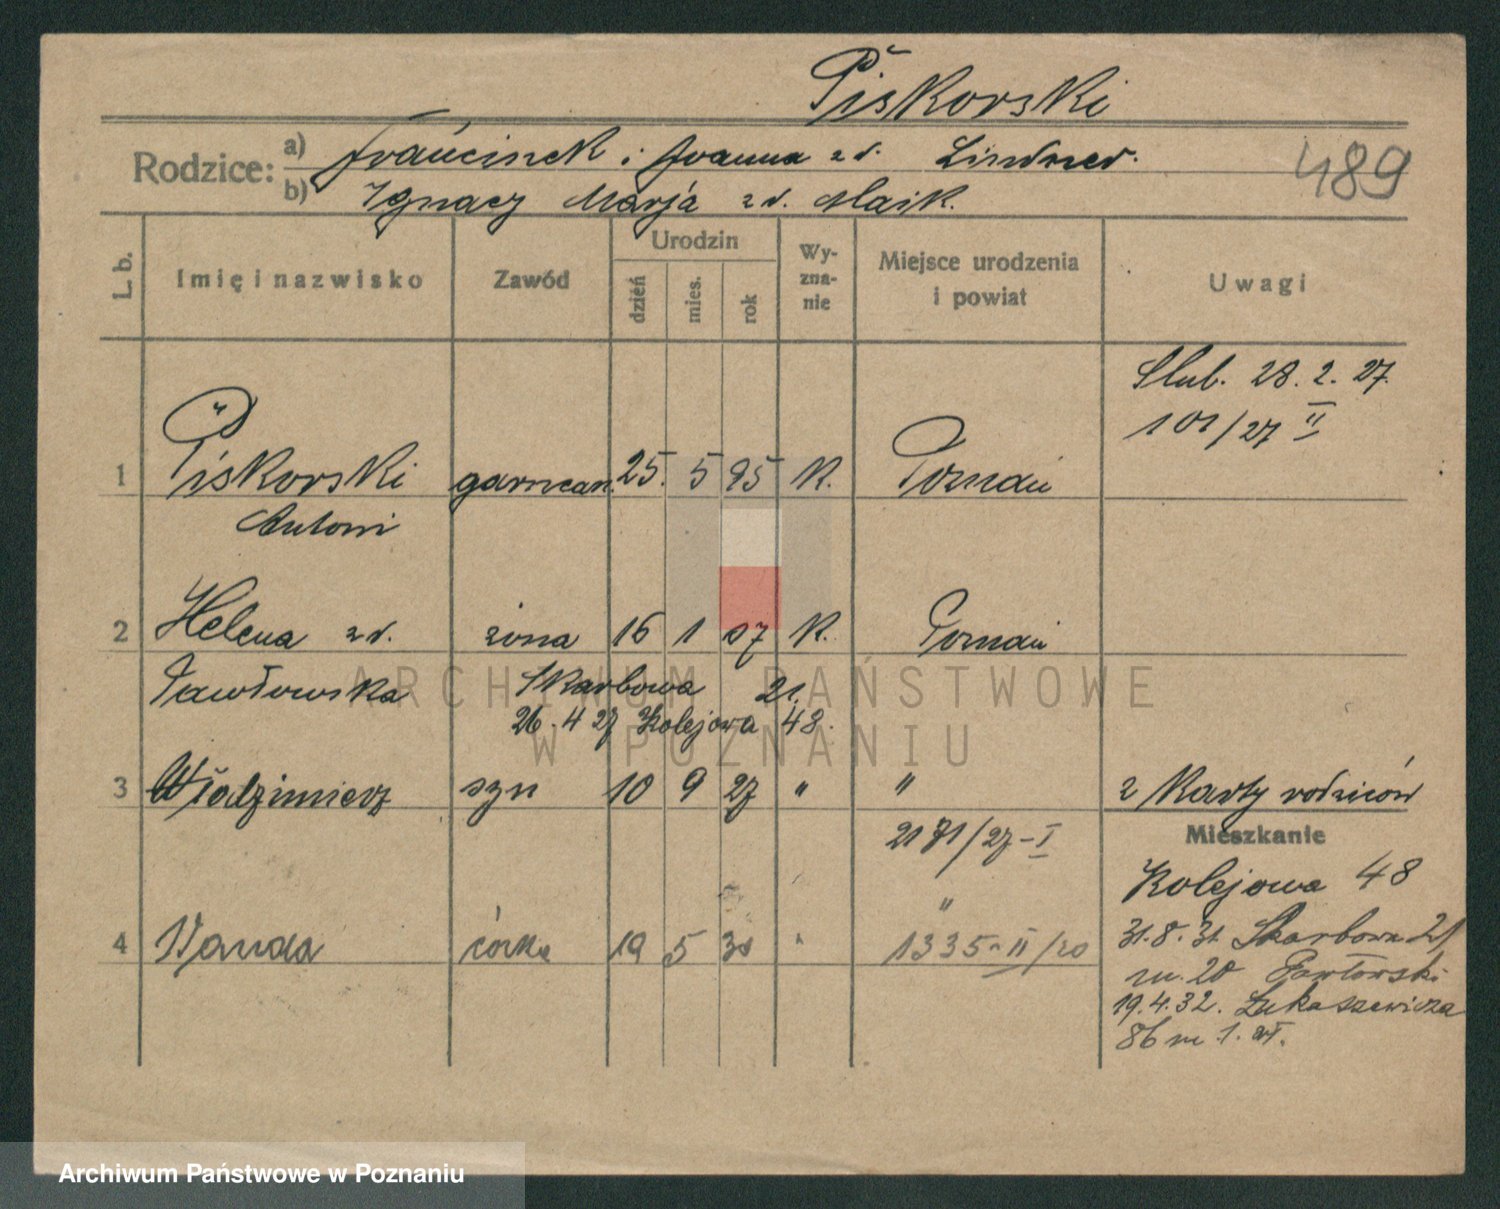 Piskorski
489
Rodzice:
a) Franciszek i Joanna z d. Lindner.
b) Ignacy Marja z d.
L. b.
Imię i nazwisko
Zawód
Urodzin
dzień
mies.
rok
Wy-
zna-
nie
Miejsce urodzenia
i powiat
Uwagi
Slub. 28. 2. 27.
101/27 II
1 Piskorski garncarz. 25. 5 95 K. Poznań
Antoni
2 Helena z d. żona 16 1 07 K. Poznań
Pawłowska Skarbowa 21.
26. 4 27 Kolejowa 48.
3 Włodzimierz syn 10 9 27 " " z Karty rodziców
2171/27-I
Mieszkanie
Kolejowa 48
"
4 Wanda córka 19 5 30 " 1335-II/30
31.8.31 Skarbowa 21
m. 20 Pawłowski
19.4.32. Łukaszewicza
86 m 1. wł.
ARCHIWUM PAŃSTWOWE
W POZNANIU
Archiwum Państwowe w Poznaniu